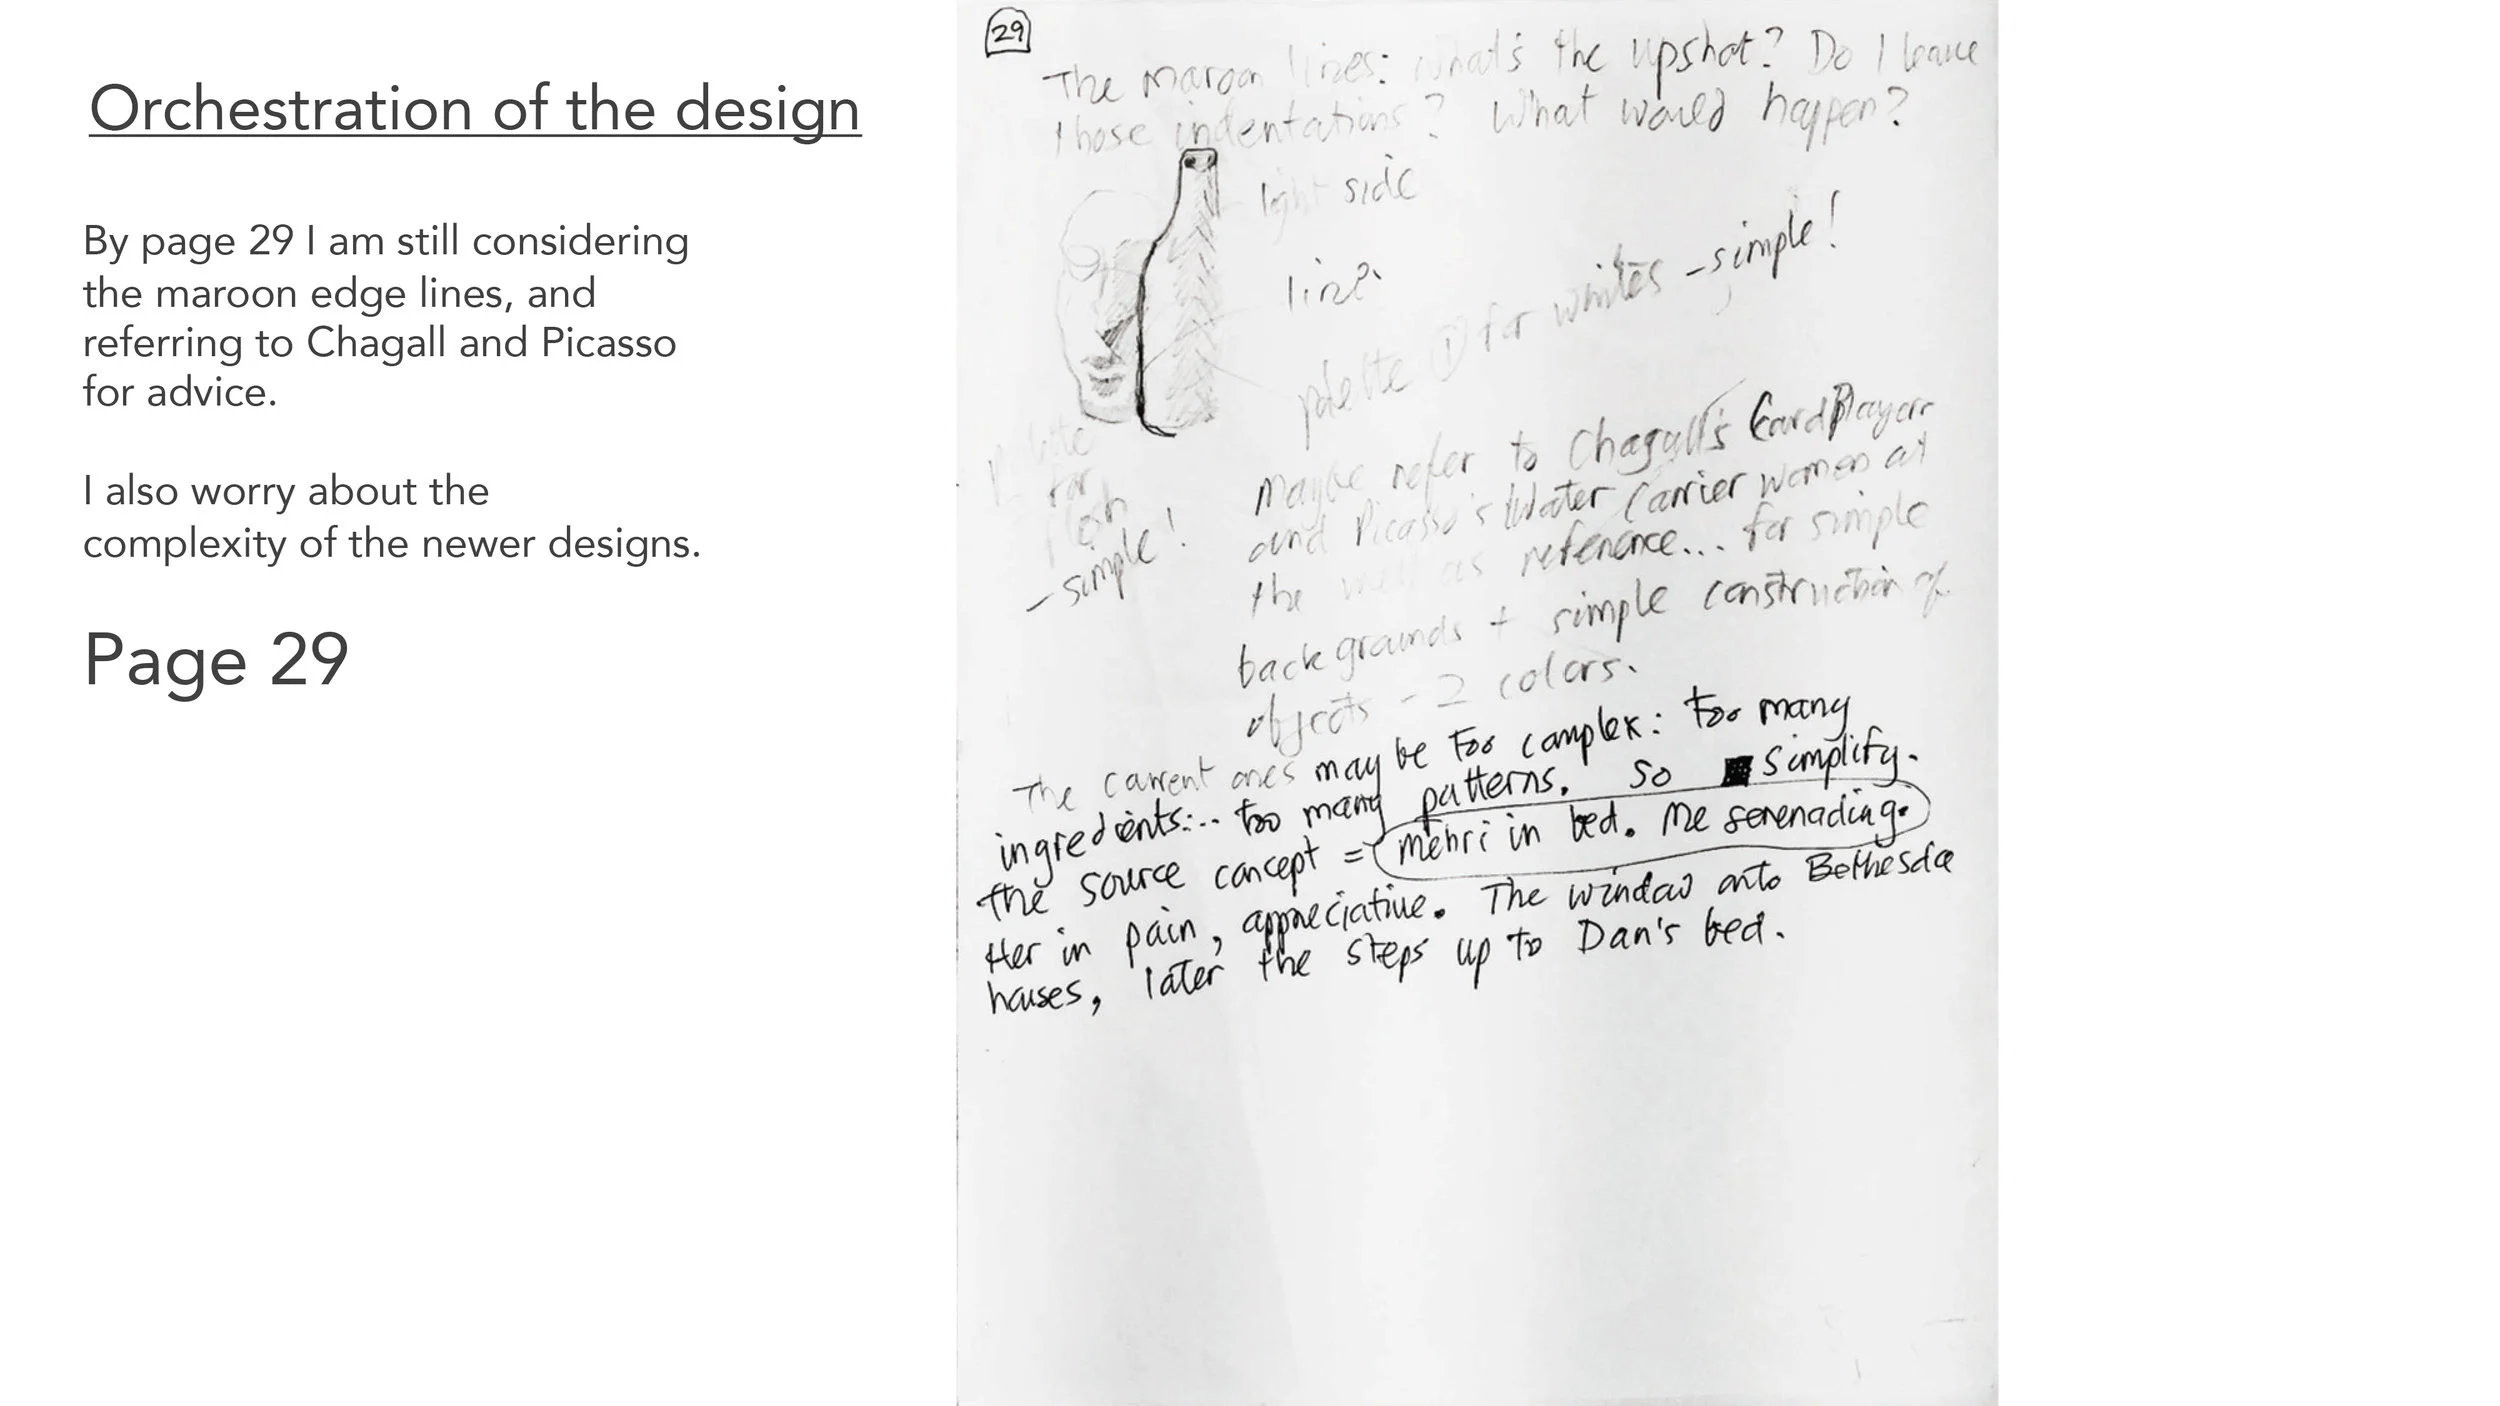 Orchestration of the design
By page 29 I am still considering
the maroon edge lines, and
referring to Chagall and Picasso
for advice.
I also worry about the
complexity of the newer designs.
Page 29
29
The maroon lines: What's the upshot? Do I leave
those indentations? What would happen?
light side
line.
palette ① for whites - simple!
Palette
for
flesh
- simple!
Maybe refer to Chagall's Card Player
and Picasso's Water Carrier women at
the well as reference... for simple
backgrounds + simple construction of
objects - 2 colors.
The current ones may be too complex: too many
ingredients... too many patterns. So simplify.
The source concept = Mehri in bed. Me serenading.
Her in pain, appreciative. The window onto Bethesda
houses, later the steps up to Dan's bed.